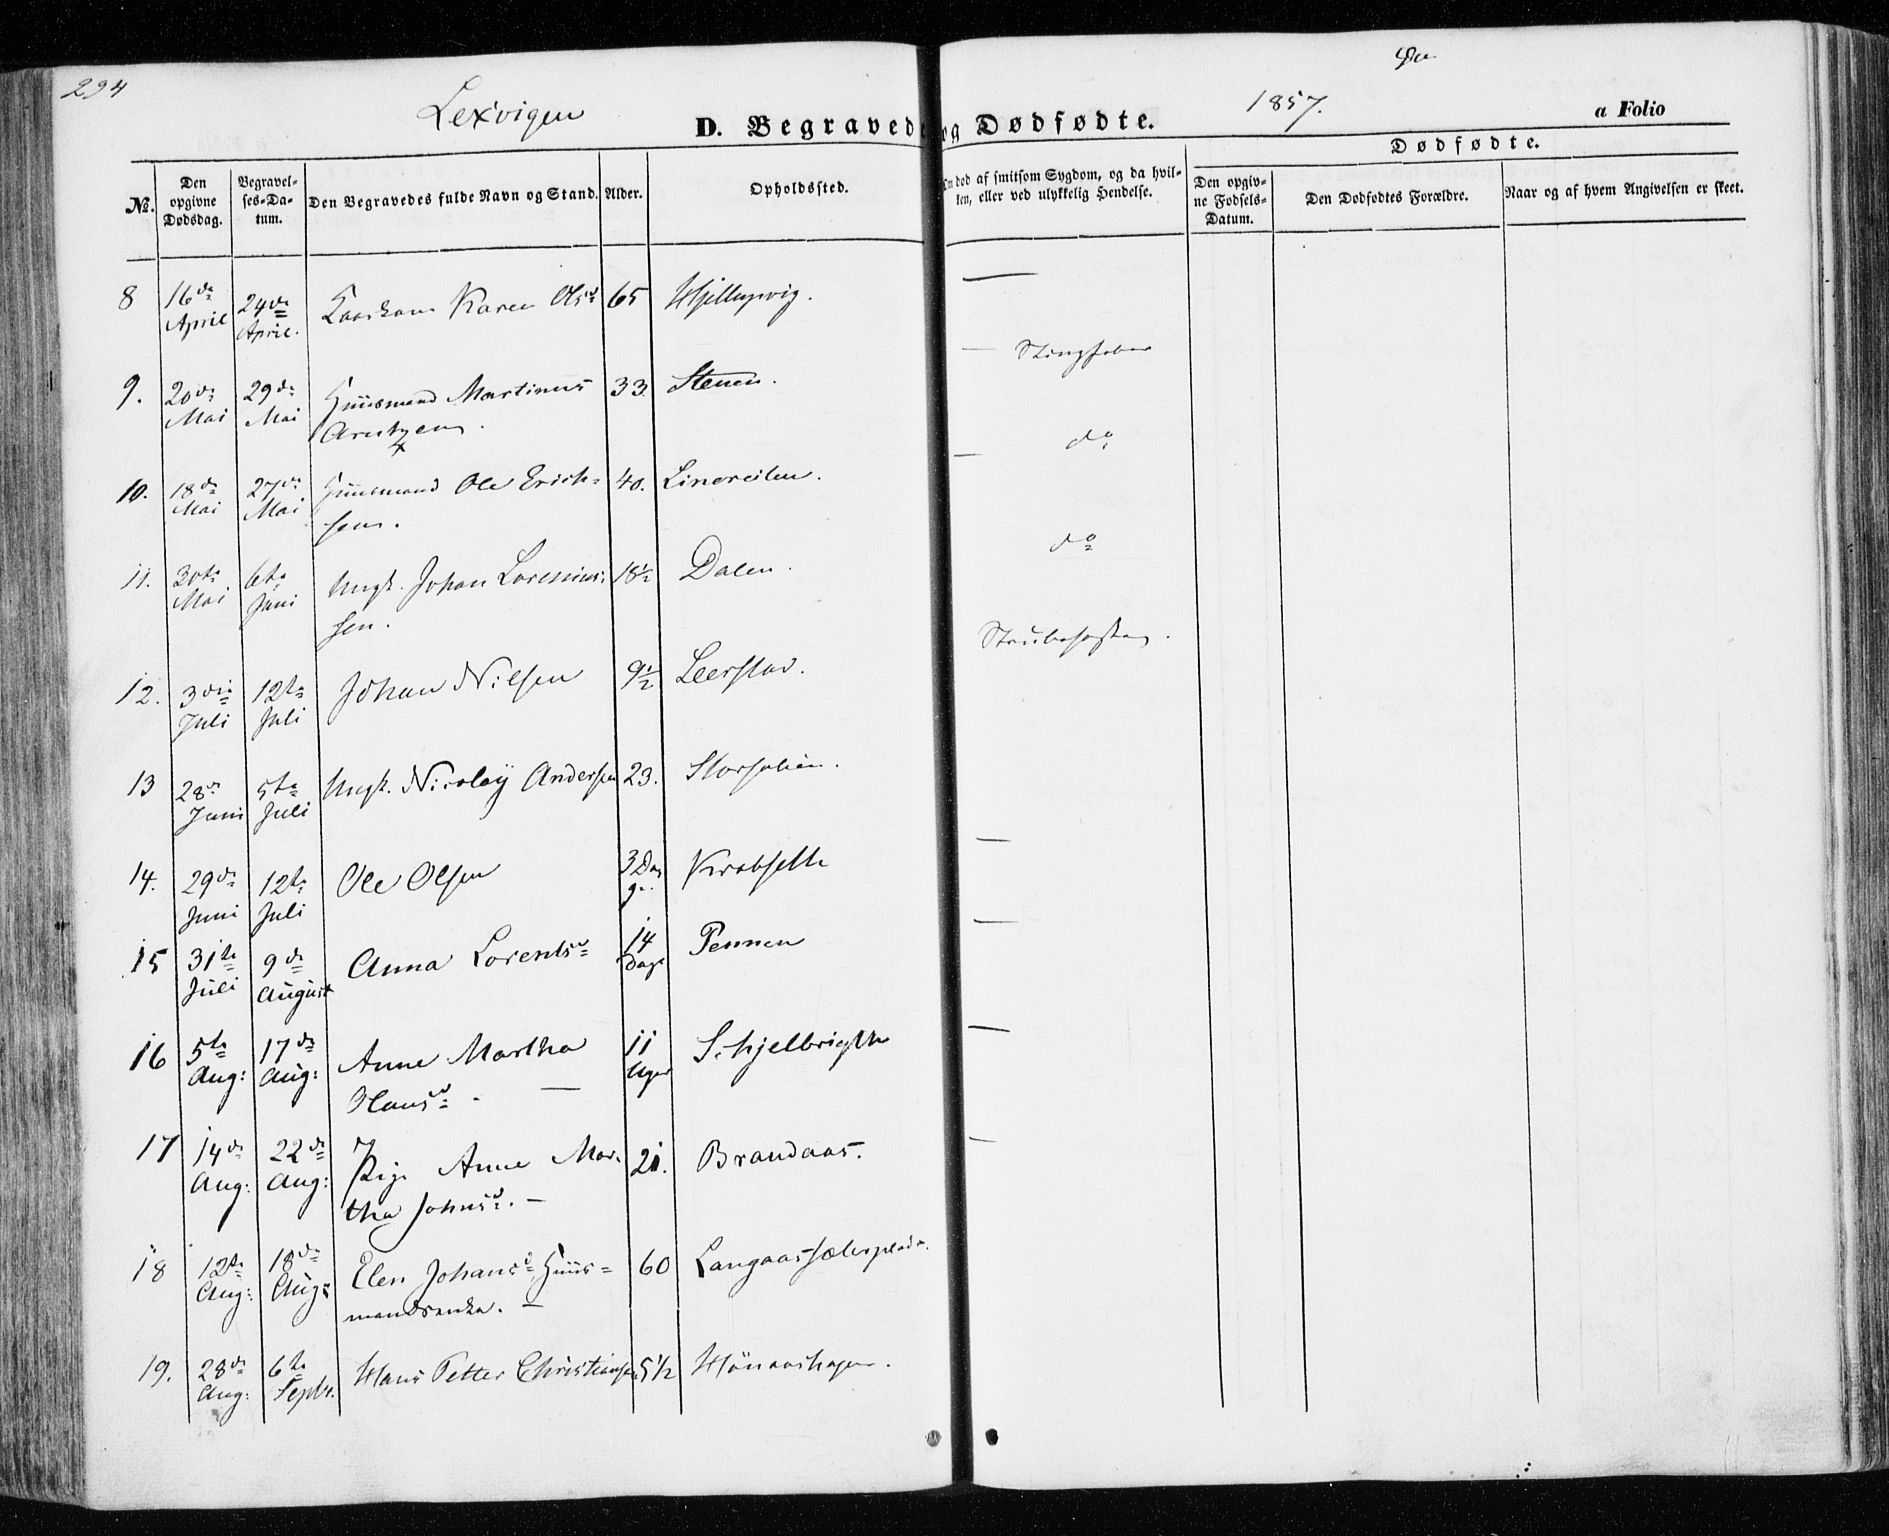 294
Lexvigen
D. Begravede og Dødfødte.
1857.
a Folio
Dødfødte.
No.
Den opgivne Dødsdag.
Begravelses-Datum.
Den Begravedes fulde Navn og Stand.
Alder.
Opholdssted.
Om død af smitsom Sygdom, og da hvilken, eller ved ulykkelig Hendelse.
Den opgivne Fødsels-Datum.
Den Dødfødtes Forældre.
Naar og af hvem Angivelsen er skeet.
8 16de April 24de April. Karen Olsd 65 —
9. 20de Mai 29de Mai Huusmand Martinus 33. Steuen. —
Arentzen.
10. 18de Mai 27de Mai Huusmand Ole Erich- 40. Linereilen. — do
sen.
11. 30te Mai 6te Juni Ungk. Johan Lorenius- 18½ Dalen. do
sen.
12. 3die Juli 12te Juli Johan Nilsen 9½ Leerstad. Strubehoste.
13 28de Juni 5te Juli Ungk. Nicolay Andersen 23.
14. 29de Juni 12te Juli Ole Olsen 3 Dage. Krabsett —
15 31te Juli 9de August Anna Lorentsd 14 Dage Pennen —
16 5te Aug: 17de Aug: Anne Martha 11 Uger Schjelbrigth —
Hansd. —
17 14de Aug: 22de Aug: Pige Anne Mar- 21. Brandaas. —
tha Johnsd. —
18 12te Aug: 18de Aug: Elen Johansd Huus- 60 Langaassæterplads.
mandsenke. —
19. 28de Aug: 6te Septbr. Hans Petter Christiansen 5½